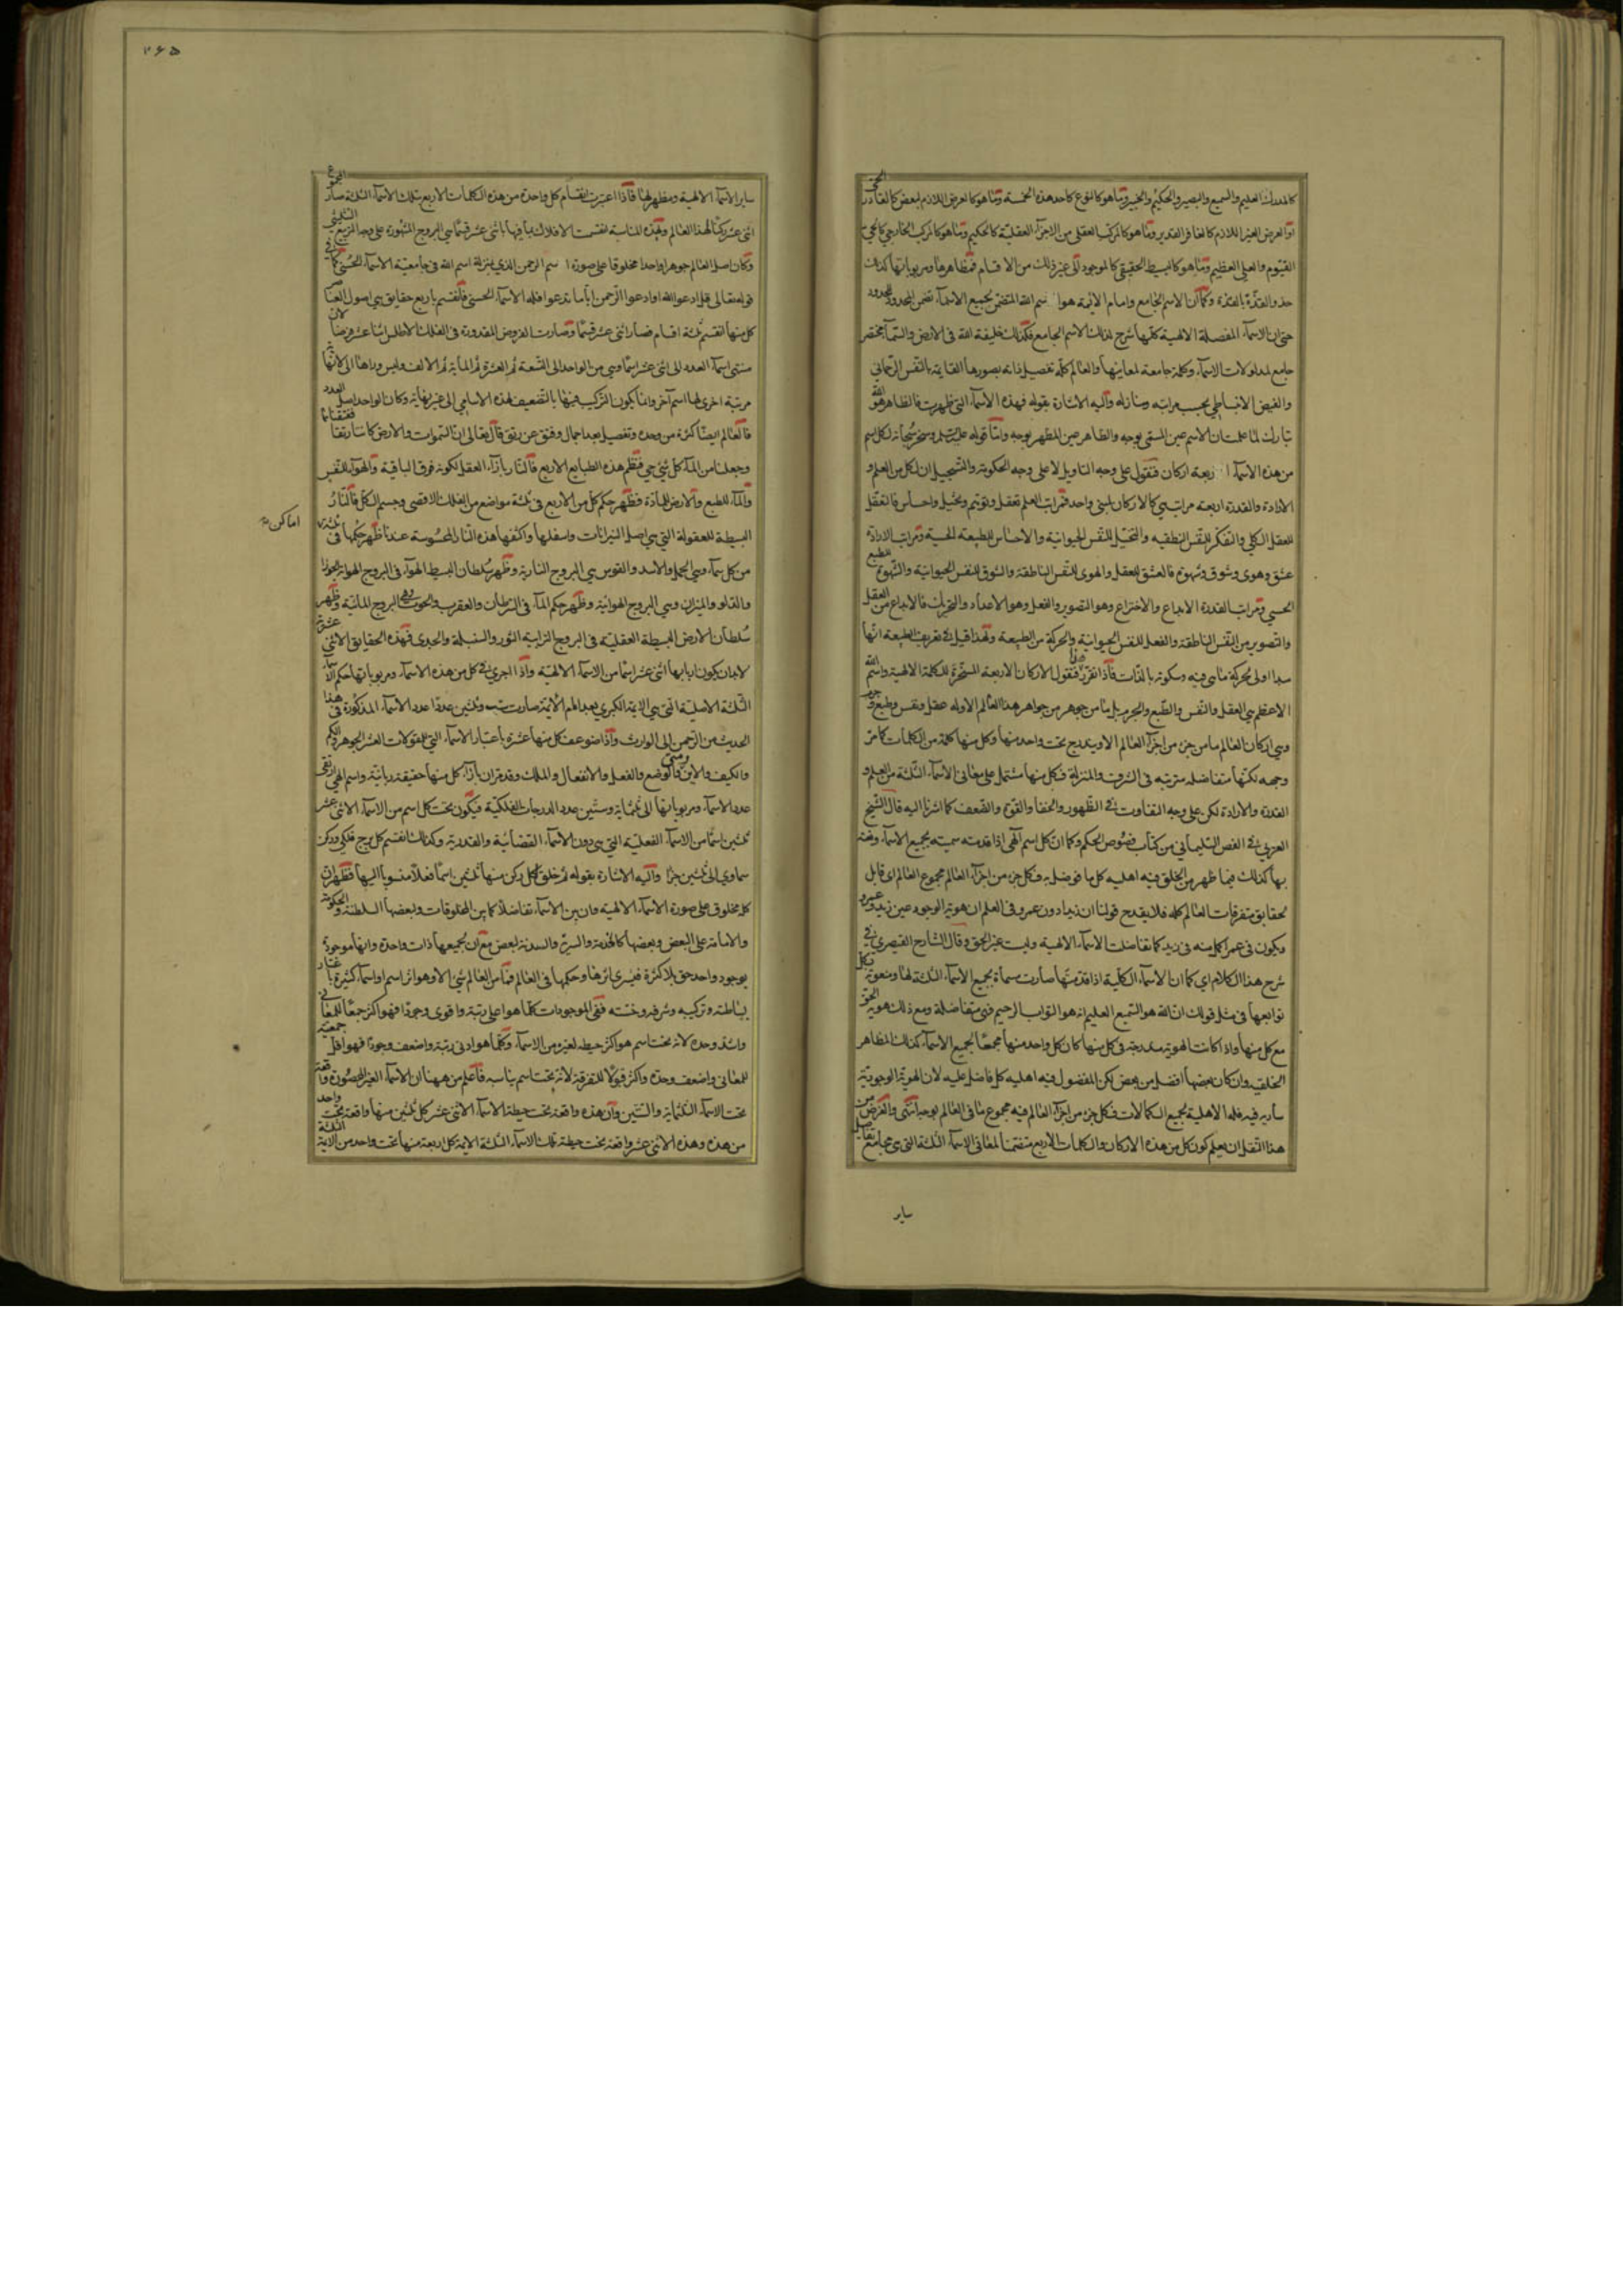 كالمدرك العليم والسميع والبصير والحكيم والخبير ومنها هو كالنوع كاحد هذه الخمسة ومنها هو كالعرض اللازم لبعض كالقادر الحي
او العرض الغير اللازم كالغافر القدير ومنها هو كالمركب العقلي من الاجزاء العقلية كالحكيم ومنها هو كالمركب الخارجي كالحي
القيوم والعلي العظيم ومنها هو كالبسيط الحقيقي كالموجود الى غير ذلك من الاقسام فمظاهرها ومربوباتها كذلك
حذو القذة بالقذة وكما ان الاسم الجامع وامام الائمة هو اسم الله المتضمن لجميع الاسماء تضمن المحدود للحدود
حتى ان الاسماء المفصلة الالهية كلها شرح لذلك الاسم الجامع فكذلك خليفة الله في الارض والسماء مختصر
جامع لمدلولات الاسماء وكلمة جامعة لمعاينها والعالم كله تفصيل ذاته بصورها القايمة بالنفس الرحماني
والفيض الانبساطي بحسب مراتبه ومنازله واليه الاشارة بقوله فهذه الاسماء التي ظهرت فالظاهر هو الله
تبارك لما علمت ان الاسم عين المسمى بوجه والظاهر عين المظهر بوجه واما قوله وسخر سبحانه لكل اسم
من هذه الاسماء اربعة اركان فنقول على وجه التاويل لا على وجه الحكومة والتسجيل ان لكل من العلم و
الارادة والقدرة اربعة مراتب هي كالاركان لشيء واحد فمراتب العلم تعقل وتوهم وتخيل واحساس فالتعقل
للعقل الكلي والتفكر للنفس النطقية والتخيل للنفس الحيوانية والاحساس للطبيعة الحسية ومراتب الارادة
عشق وهوى وشوق وشهوة فالعشق للعقل والهوى للنفس الناطقة والشوق للنفس الحيوانية والشهوة للطبع
الحسي ومراتب القدرة الابداع والاختراع وهو التصوير والفعل وهو الاعداد والتحريك فالابداع من العقل
والتصوير من النفس الناطقة والفعل للنفس الحيوانية والحركة من الطبيعة ولهذا قيل في تعريف الطبيعة انها
مبدا اولى لحركة ما هي فيه وسكونه بالذات فاذا تقرر هذا فنقول الاركان الاربعة المسخرة للكلمة الالهية واسم الله
الاعظم هي العقل والنفس والطبع والجرم بل ما من جوهر من جواهر هذا العالم الا وله عقل ونفس وطبع وجرم
وهي اركان العالم ما من جزء من اجزاء العالم الا ويندرج تحت واحد منها وكل منها كلمة من الكلمات كما مر
وجهه لكنها متفاضله مترتبه في الشرف والمنزلة فكل منها مشتمل على معاني الاسماء الثلثة من العلم و
القدرة والارادة لكن على وجه التفاوت في الظهور والخفاء والقوة والضعف كما اشرنا اليه قال الشيخ
العربي في الفص السليماني من كتاب فصوص الحكم وكما ان كل اسم الهي اذا قدمته سميته بجميع الاسماء ونعته
بها كذلك فيما ظهر من الخلق فيه اهليه كل ما فوضل به فكل جزء من اجزاء العالم مجموع العالم اى قابل
لحقايق متفرقات العالم كله فلا يقدح قولنا ان زيدا دون عمرو في العلم ان هوية الوجود عين زيد وعمرو
ويكون في عمرو اكمل منه في زيد كما تفاضلت الاسماء الالهية وليست غير الحق وقال الشارح القيصري في
شرح هذا الكلام اي كما ان الاسماء الكلية اذا قدمتها صارت مسماة بجميع الاسماء التالية لها ومنعوتة بكل
توابعها في مثل قولك ان الله هو السميع العليم انه هو التواب الرحيم فهي متفاضلة ومع ذلك هوية الحق
مع كل منها واذا كانت الهوية مندرجة في كل منها كان كل واحد منها مجمعا لجميع الاسماء كذلك المظاهر
الخلقيه وان كان بعضها افضل من بعض لكن المفضول فيه اهليه كل فاضل عليه لان الهوية الوجودية
سارية فيه فله الاهلية لجميع الكمالات فكل جزء من اجزاء العالم فيه مجموع ما في العالم بوجه انتهى والغرض من
هذا النقل ان يعلم كون كل من هذه الاركان والكلمات الاربع متضمنا لمعاني الاسماء الثلثة التي هي مجامع تفاصيل
ساير
٢٦٥
ساير الاسماء الالهية ومظهر لها فاذا اعتبرت انقسام كل واحدة من هذه الكلمات الاربع بتلك الاسماء الثلثة صار المجموع
اثنى عشر ركنا لهذا العالم وبهذه المناسبة انقسمت الافلاك بما فيها باثنى عشر قسما هي البروج المشهورة على وجه التربيع التثليثي
وكان اصل العالم جوهرا واحدا مخلوقا على صورة اسم الرحمن الذي بمنزلة اسم الله في جامعية الاسماء الحسنى كما في
قوله تعالى قل ادعوا الله او ادعوا الرحمن ايا ما تدعوا فله الاسماء الحسنى فانقسم باربع حقايق هي اصول العناصر
كل منها انقسم ثلثة اقسام فصار اثنى عشر قسما وصارت الفروض المقدورة في الفلك الاطلس اثنا عشر فرضا لان
منتهى اسماء العدد الى اثنى عشر اسما وهي من الواحد الى التسعة ثم العشرة ثم المأية ثم الالف وليس وراها الا كانها ثم
مرتبة اخرى لها اسم آخر وانما يكون التركيب فيها بالتضعيف لهذه الاسامي الى غير نهاية وكان الواحد اصل العدد
فالعالم ايضا كثرة من وحدة وتفصيل بعد اجمال وفتق عن رتق قال تعالى ان السموات والارض كانتا رتقا ففتقناهما
وجعلنا من الماء كل شيء حي فنظم هذه الطبايع الاربع فالنار بازاء العقل لكونه فوق الباقية والهواء للنفس
والماء للطبع والارض للمادة فظهر حكم كل من الاربع في ثلثة مواضع من الفلك الاقصى وجسم الكل فالنار
البسيطة المعقولة التي هي اصل النيرانات واسفلها واكثفها هذه النار المحسوسة عندنا ظهر حكمها في ثلثة
اماكن
من كل سماء وهي الحمل والاسد والقوس هي البروج النارية وظهر سلطان البسيط الهواء في البروج الهوائية الجوزا
والدلو والميزان وهي البروج الهوائية وظهر حكم الماء في السرطان والعقرب والحوت وهي البروج المائية وظهر
سلطان الارض البسيطة العقلية في البروج الترابية الثور والسنبلة والجدي فهذه الحقايق الاثنى عشرة
لابد ان يكون اربابها اثنى عشر اسما من الاسماء الالهية واذا اجري في كل من هذه الاسماء ومربوباتها حكم الاسماء
الثلثة الاصلية التي هي الاية الكبرى بعد امام الائمة صارت ستة وثلثين عددا عدد الاسماء المذكورة في هذا
الحديث من الرحمن الى الوارث واذا ضوعف كل منها عشرة باعتبار الاسماء التي للمقولات العشر الجوهر والكم
والكيف والاين ومتى والوضع والفعل والانفعال والملك وقد مر ان بازاء كل منها حقيقة ربانية واسم الهي ارتقى
عدد الاسماء ومربوباتها الى ثلثمائة وستين عدد الدرجات الفلكية فيكون تحت كل اسم من الاسماء الاثنى عشر
ثلثين اسما من الاسماء الفعلية التي هي دون الاسماء القضائية والقدرية وكذلك انقسم كل برج فلكي وركن
سماوي الى ثلثين جزءا واليه الاشارة بقوله ثم خلق لكل ركن منها ثلثين اسما فعلا منسوبا اليها فظهر ان
كل مخلوق على صورة الاسماء الالهية وان بين الاسماء تفاضلا كما بين المخلوقات وبعضها السلطنة والحكومة
والامامة على البعض وبعضها كالخدمة والسدنة لبعض مع ان لجميعها ذات واحدة وانها موجودة
بوجود واحد حق بلا كثرة فيسري اثرها وحكمها في العالم فما من العالم شيء الا وهو اثر اسم او اسماء كثيرة باعتبار
بساطته وتركيبه وشرفه وخسته ففي الموجودات كلما هو اعلى رتبة واقوى وجودا فهو اكثر جمعا للمعاني
واشد وحدة لانه تحت اسم هو اكثر حيطه لغيره من الاسماء وكلما هو ادنى رتبة واضعف وجودا فهو اقل جمعية
للمعاني واضعف وحدة واكثر قبولا للتفرقة لانه تحت اسم يناسبه فاعلم من ههنا ان الاسماء الغير المحصورة واقعة
تحت الاسماء الثلثمائة والستين وان هذه واقعة تحت حيطة الاسماء الاثنى عشر كل ثلثين منها واقعة تحت واحد
من هذه وهذه الاثنى عشر واقعة تحت حيطة تلك الاسماء الثلثة الائمة كل اربعة منها تحت واحد من الائمة الثلثة